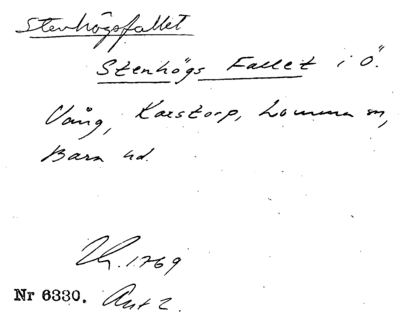 Stenhögsfallet
Stenhögs Fallet i Ö.
Vång, Karstorp, Lomma sn,
Bara hd.
Lh. 1769
Nr 6330. Akt 2.